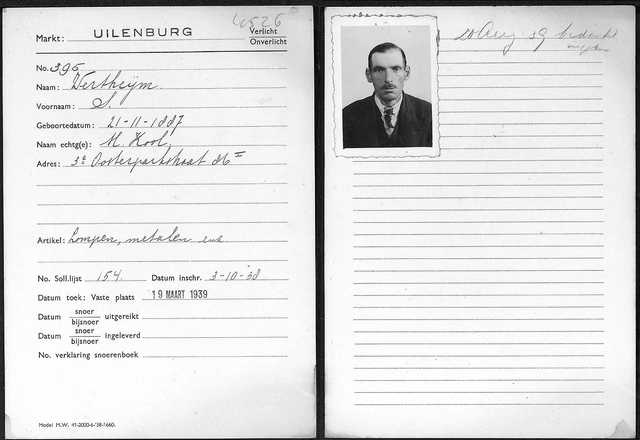 6526
Markt: UILENBURG
Verlicht
Onverlicht
No. 395
Naam: Wertheijm
Voornaam: S.
Geboortedatum: 21-11-1887
Naam echtg(e): M. Kool
Adres: 3e Oosterparkstraat 86 II
Artikel: Lompen, metalen enz.
No. Soll.lijst 154. Datum inschr. 3-10-38
Datum toek: Vaste plaats 19 MAART 1939
Datum snoer
bijsnoer uitgereikt
Datum snoer
bijsnoer ingeleverd
No. verklaring snoerenboek
Model M.W. 41-2000-6-'38-1660.
20 Aug 39